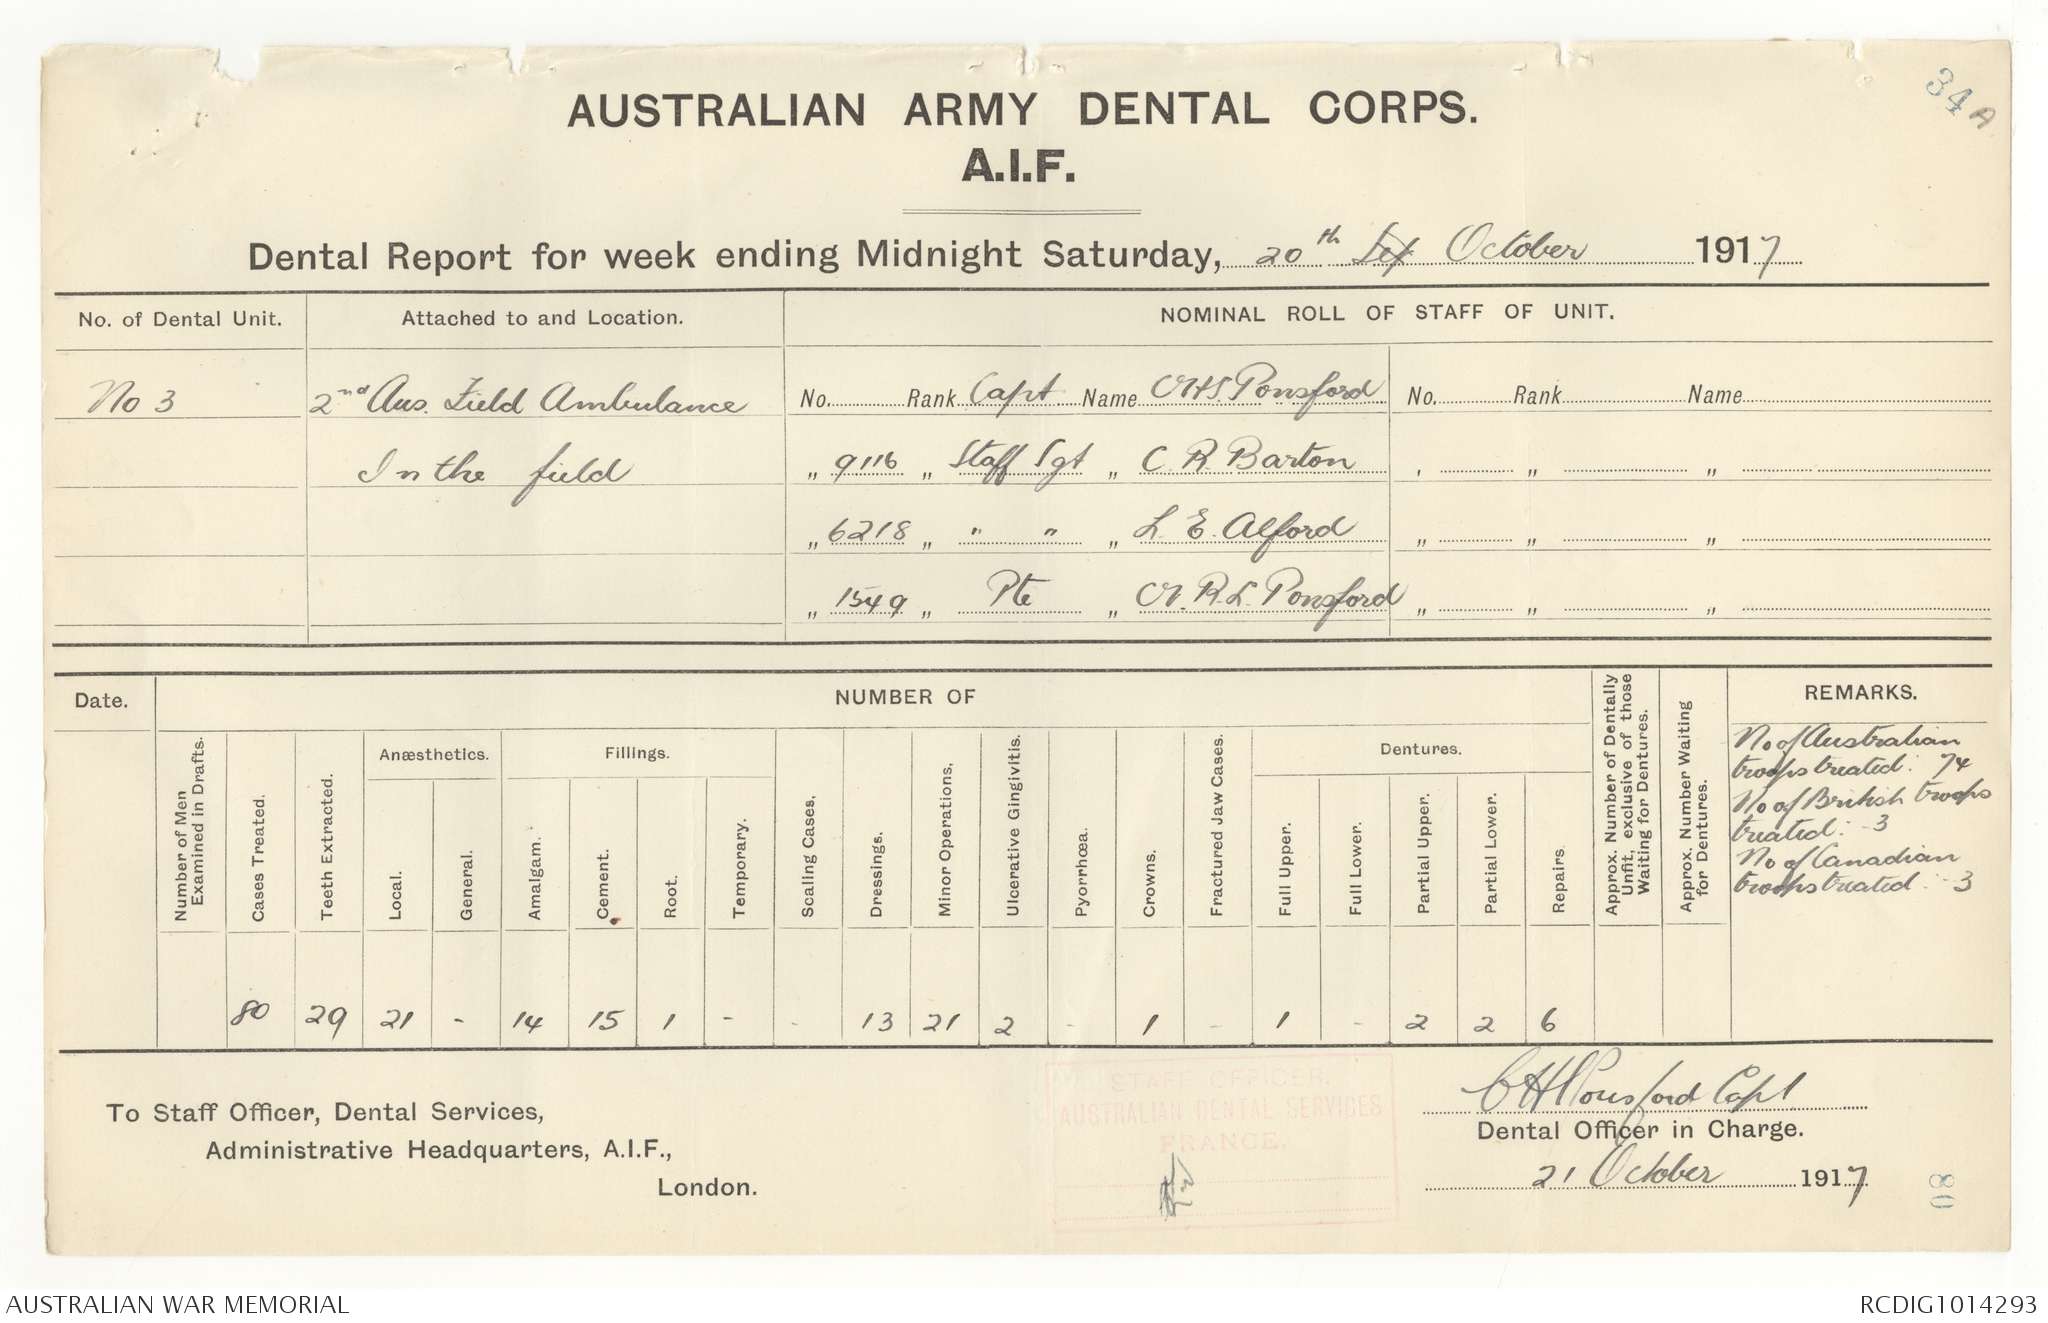 34A
AUSTRALIAN ARMY DENTAL CORPS.
A.I.F.
Dental Report for week ending Midnight Saturday, 20th October 1917
No. of Dental Unit. Attached to and Location. NOMINAL ROLL OF STAFF OF UNIT.
No 3 2nd Aus. Field Ambulance No. Rank Capt Name Ponsford No. Rank Name
In the field „ 9116 „ Staff Sgt „ C. R. Barton , „ „
„ 6218 „ " " „ L. E. Alford „ „ „
„ 1549 „ Pte „ R. L. Ponsford „ „ „
Date. NUMBER OF REMARKS.
Number of Men Examined in Drafts.
Cases Treated.
Teeth Extracted.
Anæsthetics.
Local.
General.
Fillings.
Amalgam.
Cement.
Root.
Temporary.
Scaling Cases,
Dressings.
Minor Operations,
Ulcerative Gingivitis.
Pyorrhœa.
Crowns.
Fractured Jaw Cases.
Dentures.
Full Upper.
Full Lower.
Partial Upper.
Partial Lower.
Repairs.
Approx. Number of Dentally Unfit, exclusive of those Waiting for Dentures.
Approx. Number Waiting for Dentures.
No of Australian
troops treated: 74
No of British troops
treated: - 3
No of Canadian
troops treated: - 3
80 29 21 - 14 15 1 - - 13 21 2 - 1 - 1 - 2 2 6
STAFF OFFICER,
AUSTRALIAN DENTAL SERVICES
FRANCE.
To Staff Officer, Dental Services,
Administrative Headquarters, A.I.F.,
London.
C H Ponsford Capt
Dental Officer in Charge.
21 October 1917
80
AUSTRALIAN WAR MEMORIAL RCDIG1014293